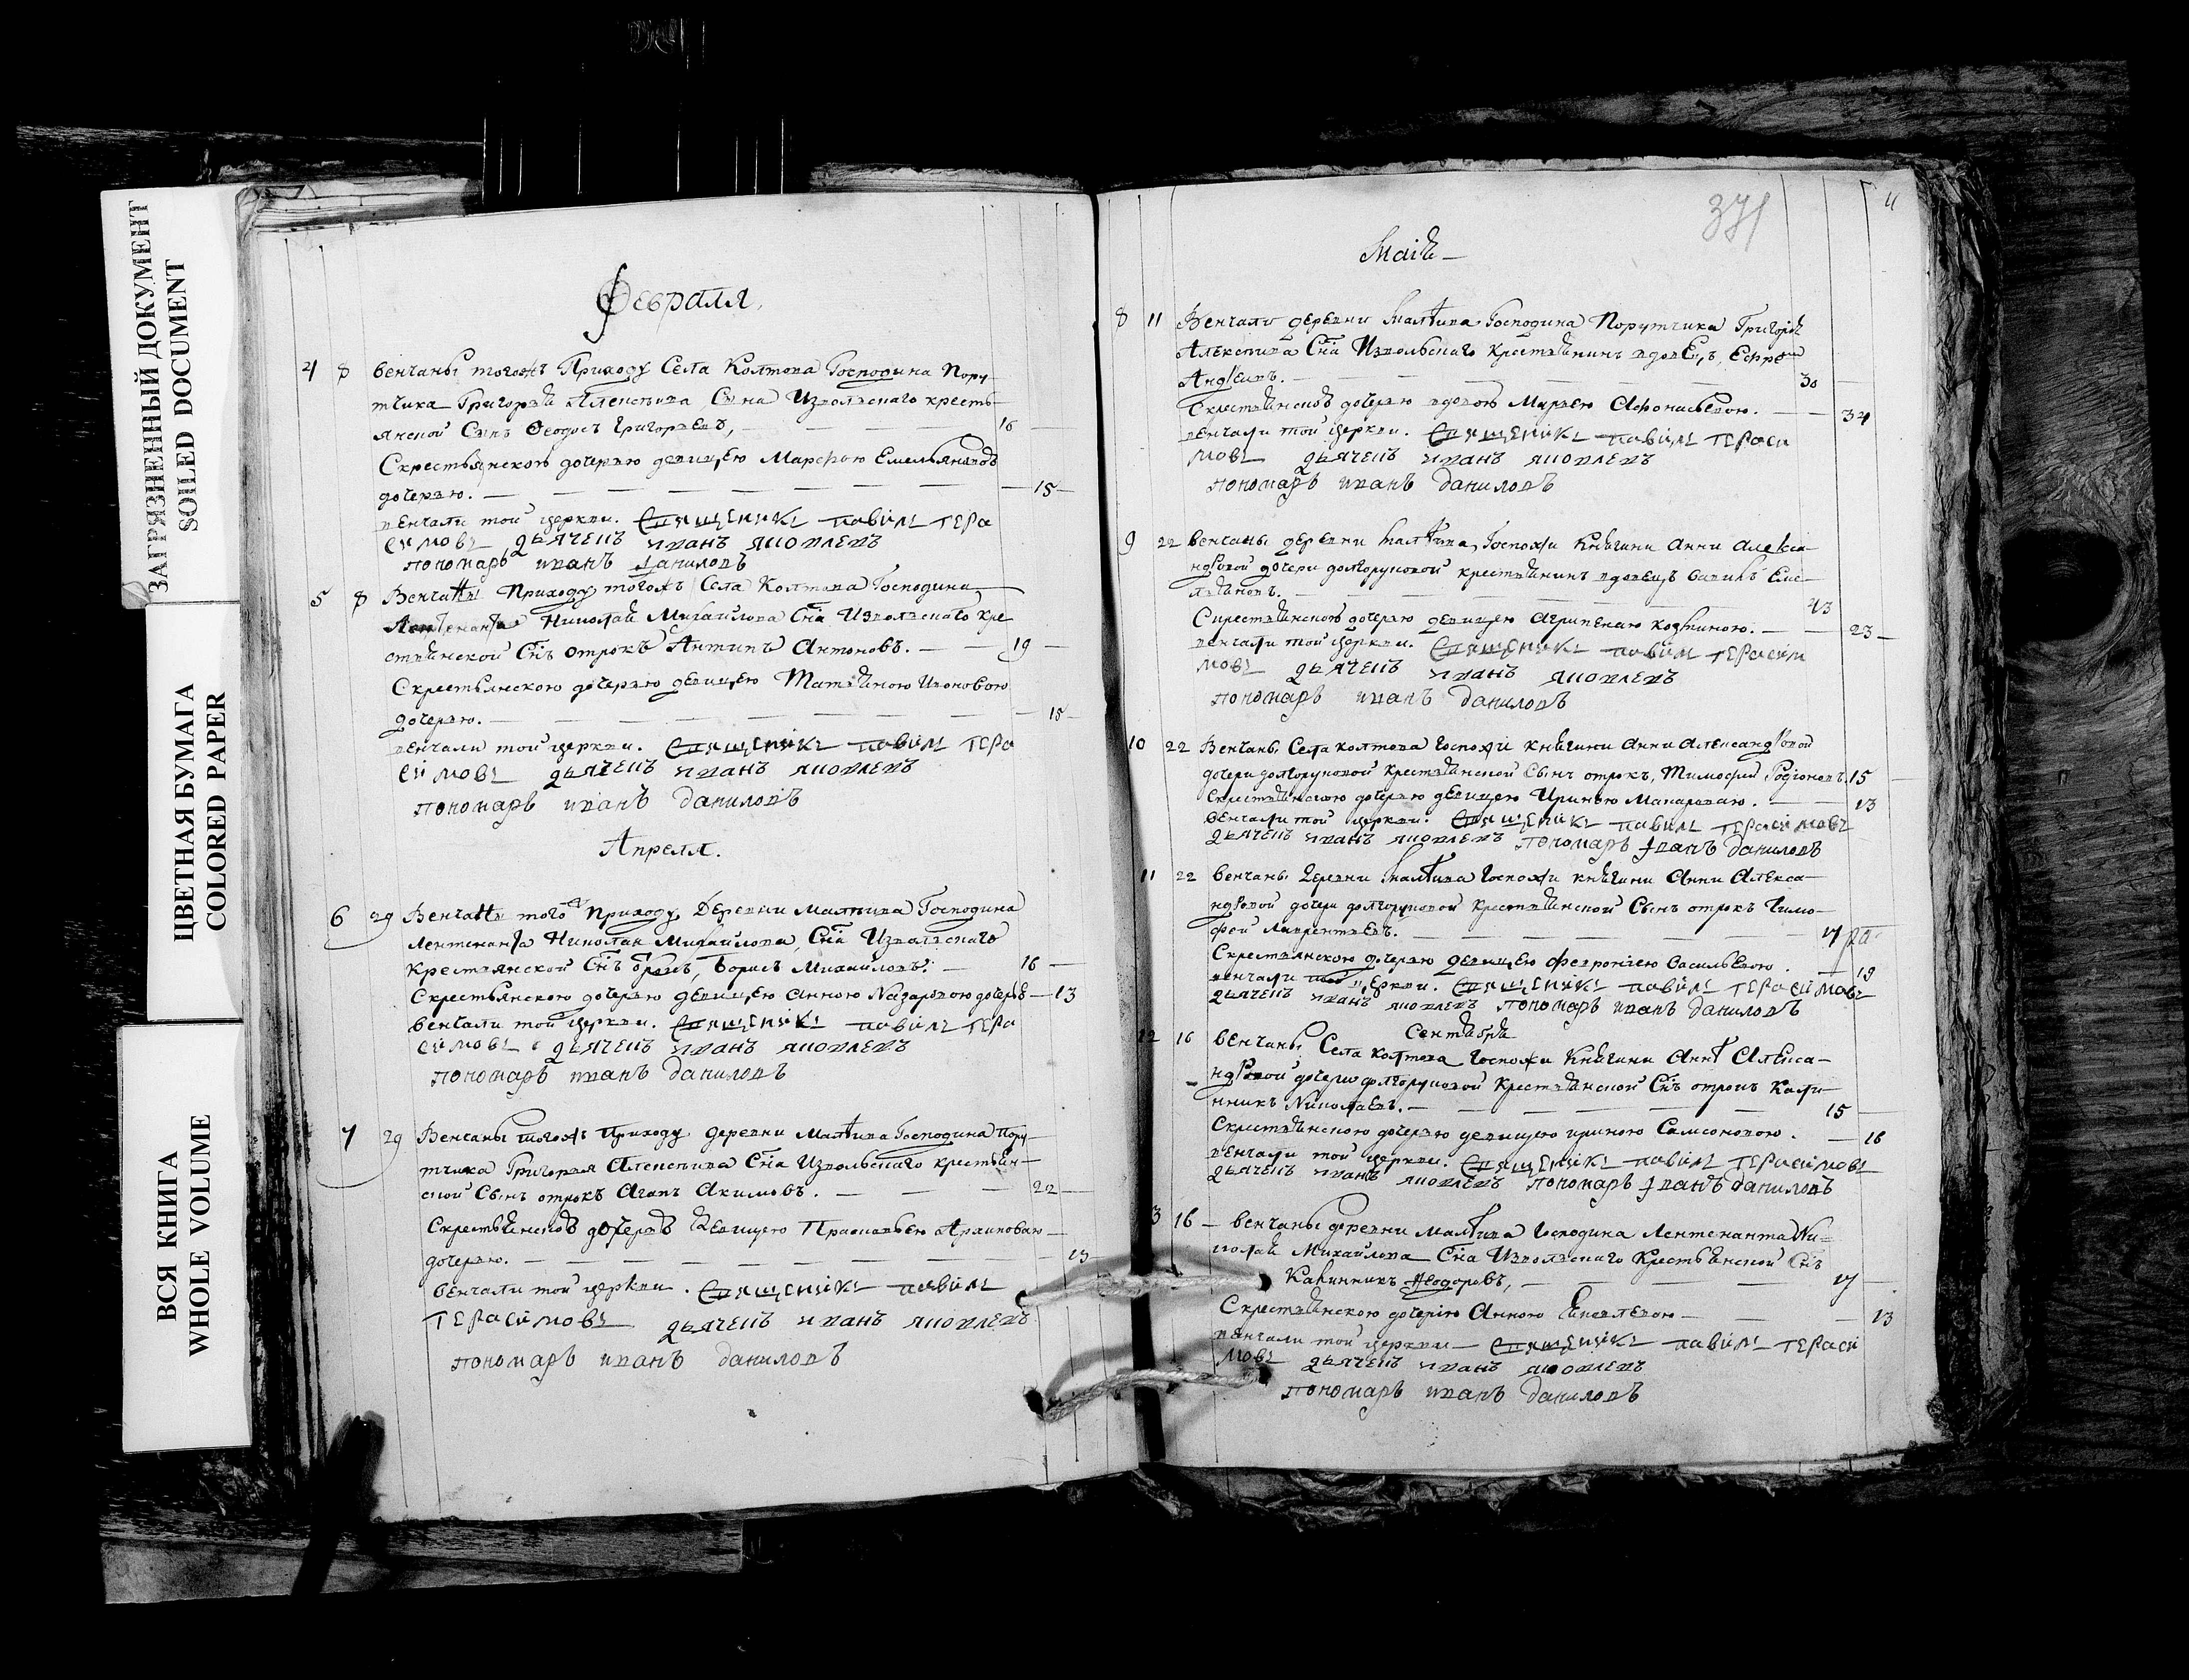 ЗАГРЯЗНЕННЫЙ ДОКУМЕНТ
SOILED DOCUMENT
ЦВЕТНАЯ БУМАГА
COLORED PAPER
ВСЯ КНИГА
WHOLE VOLUME
Февраля
4 8 венчаны тогожъ Приходу Села Колтова Господина Пору-
тчика Григорья Алексѣива Сына Извольскаго кресть-
янской Сынъ Ѳеодосъ Григорьевъ, — 16 —
Скрестьянскою дочерью девицею Марѳою Емельяновою
дочерью. — 15 —
венчали той церкви. Священникъ павилъ гера
симовъ дьячекъ иванъ яковлевъ
пономарь иванъ даниловъ
5 8 Венчаны Приходу тогожъ Села Колтова Господина
Николая Михайлова Сна Извольскаго кре
стьянской Снъ отрокъ Антипъ Антоновъ. — 19 —
Скрестьянскою дочерью девицею Татьяною
дочерью. — 15 —
венчали той церкви. Священникъ павилъ гера
симовъ дьячекъ иванъ яковлевъ
пономарь иванъ даниловъ
Апреля.
6 29 Венчаны того Приходу Деревни Малтива Господина
Лентенанта Николая Михайлова, Сна Извольскаго
крестьянской Снъ Борисъ Михайловъ. — 16 —
Скрестьянскою дочерью девицею Анною Назаровою дочерью — 13
венчали той церкви. Священникъ павилъ гера
симовъ дьячекъ иванъ яковлевъ
пономарь иванъ даниловъ
7 29 Венчаны тогожъ Приходу деревни Малтива Господина Пору-
тчика Григорья Алексѣива Сна Извольскаго крестьян-
ской Сынъ отрокъ Агапъ Акимовъ. — 22 —
Скрестьянскою дочерью девицею Прасковьею
дочерью. — 13
венчали той церкви. Священникъ павилъ
герасимовъ дьячекъ иванъ яковлевъ
пономарь иванъ даниловъ
371
Маія —
8 11 Венчали деревни Малтива Господина Порутчика Григорья
Алексеива Сна Извольскаго крестьянинъ вдовецъ,
30
Скрестьянскою дочерью вдовою Марьею Афонасьевою. — 34
венчали той церкви. Священникъ павилъ гераси
мовъ дьячекъ иванъ яковлевъ
пономарь иванъ даниловъ
9 22 венчаны деревни Малтива, Госпожи Княгини Анни Алекса-
ндровой дочери долгоруковой крестьянинъ вдовецъ Еме-
льяновъ. — 43
Скрестьянскою дочерью девицею Агрипеною Козминою. — 23 —
венчали той церкви. Священникъ павилъ герасим
мовъ дьячекъ иванъ яковлевъ
пономарь иванъ даниловъ
10 22 Венчаны Села колтова Госпожи княгини Анни Александровой
дочери долгоруковой крестьянской Сынъ отрокъ, Тимофей Родіоновъ. 15 —
Скрестьянскою дочерью девицею Ириною Макаровою. — 13
венчали той церкви. Священникъ павилъ герасимовъ
дьячекъ иванъ яковлевъ пономарь иванъ даниловъ
11 22 венчаны деревни Малтива Госпожи княгини Анни Алекса-
ндровой дочери долгоруковой крестьянской Сынъ отрокъ Тимо-
фей Лаврентьевъ. — 17
Скрестьянскою дочерью девицею Февроніею Васильевою. — 19
венчали той церкви. Священникъ павилъ герасимовъ
дьячекъ иванъ яковлевъ пономарь иванъ даниловъ
Сентября
12 16 венчаны Села колтова Госпожи Княгини Аннѣ Алекса-
ндровой дочери долгоруковой Крестьянской Снъ отрокъ Кали-
нникъ Николаевъ. — 15
Скрестьянскою дочерью девицею ириною Самсоновою. — 16
венчали той церкви. Священникъ павилъ герасимовъ
дьячекъ иванъ яковлевъ пономарь иванъ даниловъ
3 16 — венчаны деревни малтива Господина Лентенанта Ни-
колая Михайлова Сна Извольскаго Крестьянской Снъ
Калинникъ Ѳеодоровъ, — 17 —
Скрестьянскою дочерію Анною — 13
венчали той церкви — Священникъ павилъ гераси
мовъ дьячекъ иванъ яковлевъ
пономарь иванъ даниловъ